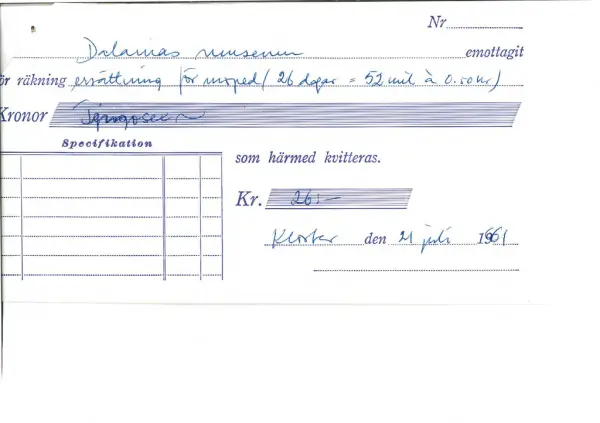 Nr
Dalarnas museum emottagit
ör räkning ersättning för moped (26 dagar = 52 mil à 0.50 kr)
Kronor Tjugosex
Specifikation
som härmed kvitteras.
Kr. 26:-
Kloster den 21 juli 1961